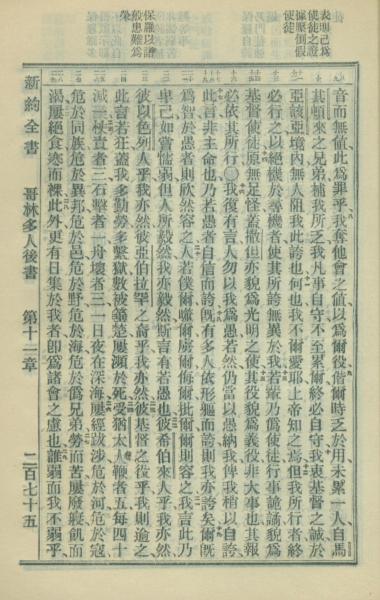 表明己爲
使徒之證
據壓倒假
使徒
保羅以諸
般患難爲
榮
音而無值此爲罪乎我奪他會之值以爲爾役偕爾時乏於用未累一人自馬
其頓來之兄弟補我所乏我凡事自守不至累爾終必自守我衷基督之誠於
亞該亞境內無人阻我此誇也何也我不爾愛耶上帝知之焉但我所行者終
必行之以絕機於尋機者使其所誇無異於我若輩乃僞爲使徒從事詭譎貌爲
基督使徒原無足怪蓋撒但亦貌爲光明之使其役貌爲義役非大事也其報
必依其所行○我復有言人勿以我爲愚若然仍當以愚納我俾我稍以自誇
此言非主命也乃若愚者自信而誇旣有多人依形軀而誇則我亦誇矣爾旣
智於愚者則欣然容之人若僕爾噬爾虜爾侮爾批爾頰則容之我言此乃
卑己如嘗懦弱但人所毅然我亦毅然斯言有若愚也彼希伯來人乎我亦然
彼以色列人乎我亦然彼亞伯拉罕之裔乎我亦然彼基督之役乎我則逾之
此言若狂蓋我多勤勞多繫獄數被箠楚屢瀕於死受猶太人鞭者五每四十
減一梃責者三石擊者一舟壞者三一日夜在深海屢經跋涉危於河危於寇
危於同族危於異邦危於邑危於野危於海危於僞兄弟勞而苦屢廢寢飢而
渴屢絕食寒而裸此外更有日集於我者卽爲諸會之慮也誰弱而我不弱乎
新約全書 哥林多人後書 第十一章 二百七十五